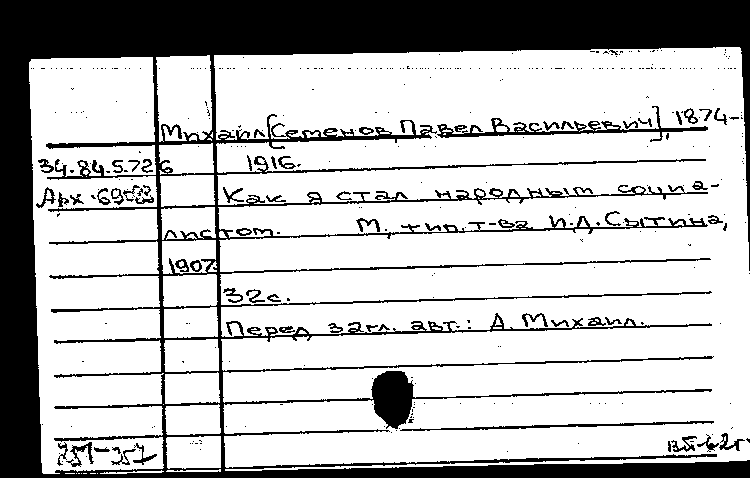 Михаил [Семенов, Павел Васильевич], 1874-
34.84.5.726 1916.
Арх. Как я стал народным социа-
листом. М., тип. т-ва И.Д. Сытина,
1907
32с.
Перед загл. авт.: А. Михаил.